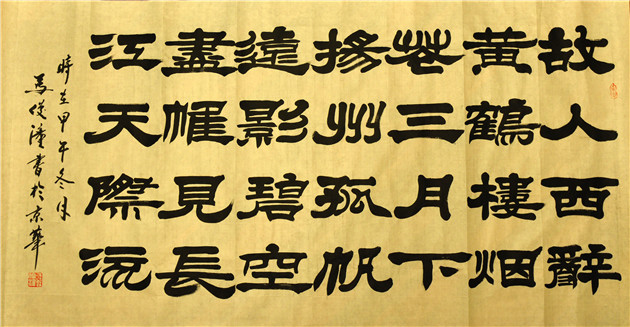 故人西辭
黄鶴樓烟
花三月下
揚州孤帆
遠影碧空
盡惟見長
江天際流
時在甲午冬月
馬俊書於京華